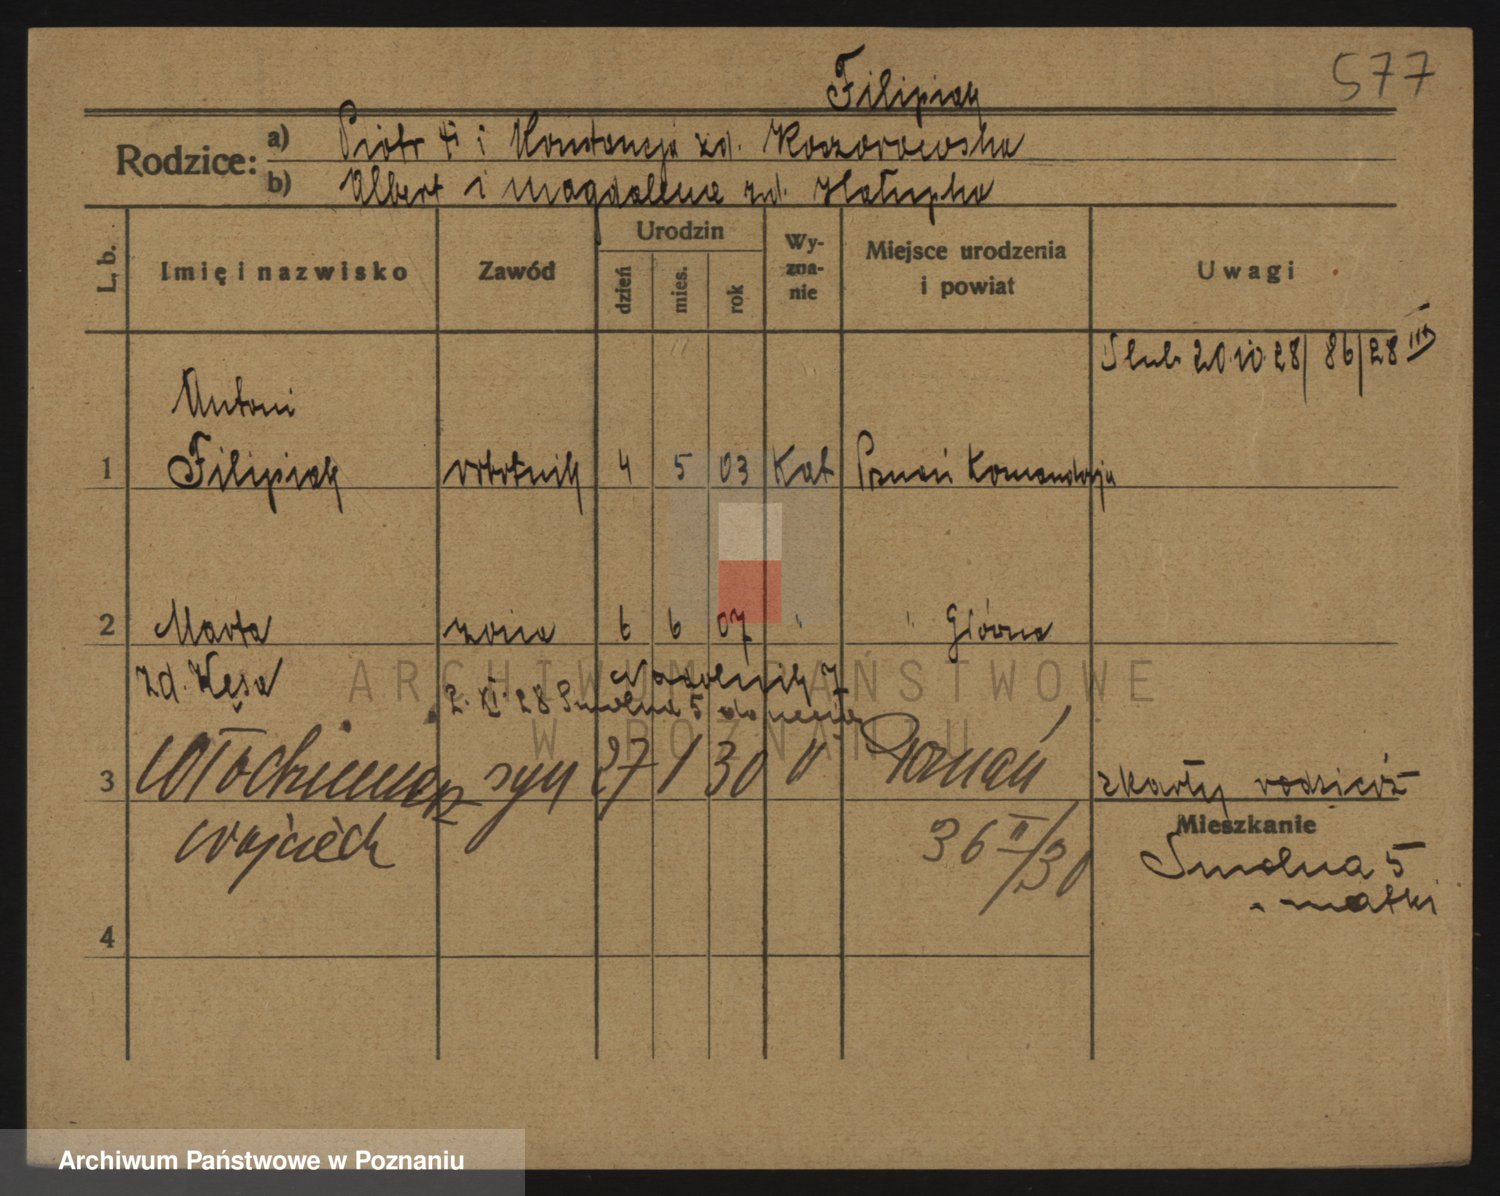 577
Filipiak
Rodzice:
a) Piotr i Konstancja zd. Kaczorowska
b) Albert i Magdalena zd. Hałupka
L. b.
Imię i nazwisko
Zawód
Urodzin
dzień
mies.
rok
Wy-
zna-
nie
Miejsce urodzenia
i powiat
Uwagi
Slub 20.10.28/ 86/28 III
Antoni
1 Filipiak robotnik 4 5 03 Kat Poznań Komandorja
2 Marta żona 6 6 07 " " Główna
zd. Kęsa
Nadolnik 7
2. XI. 28 Smolna 5
3 Włodzimierz syn 27 1 30 " Poznań z karty rodziców
Wojciech
36 II/30
Mieszkanie
Smolna 5
" matki
4
ARCHIWUM PAŃSTWOWE
W POZNANIU
Archiwum Państwowe w Poznaniu